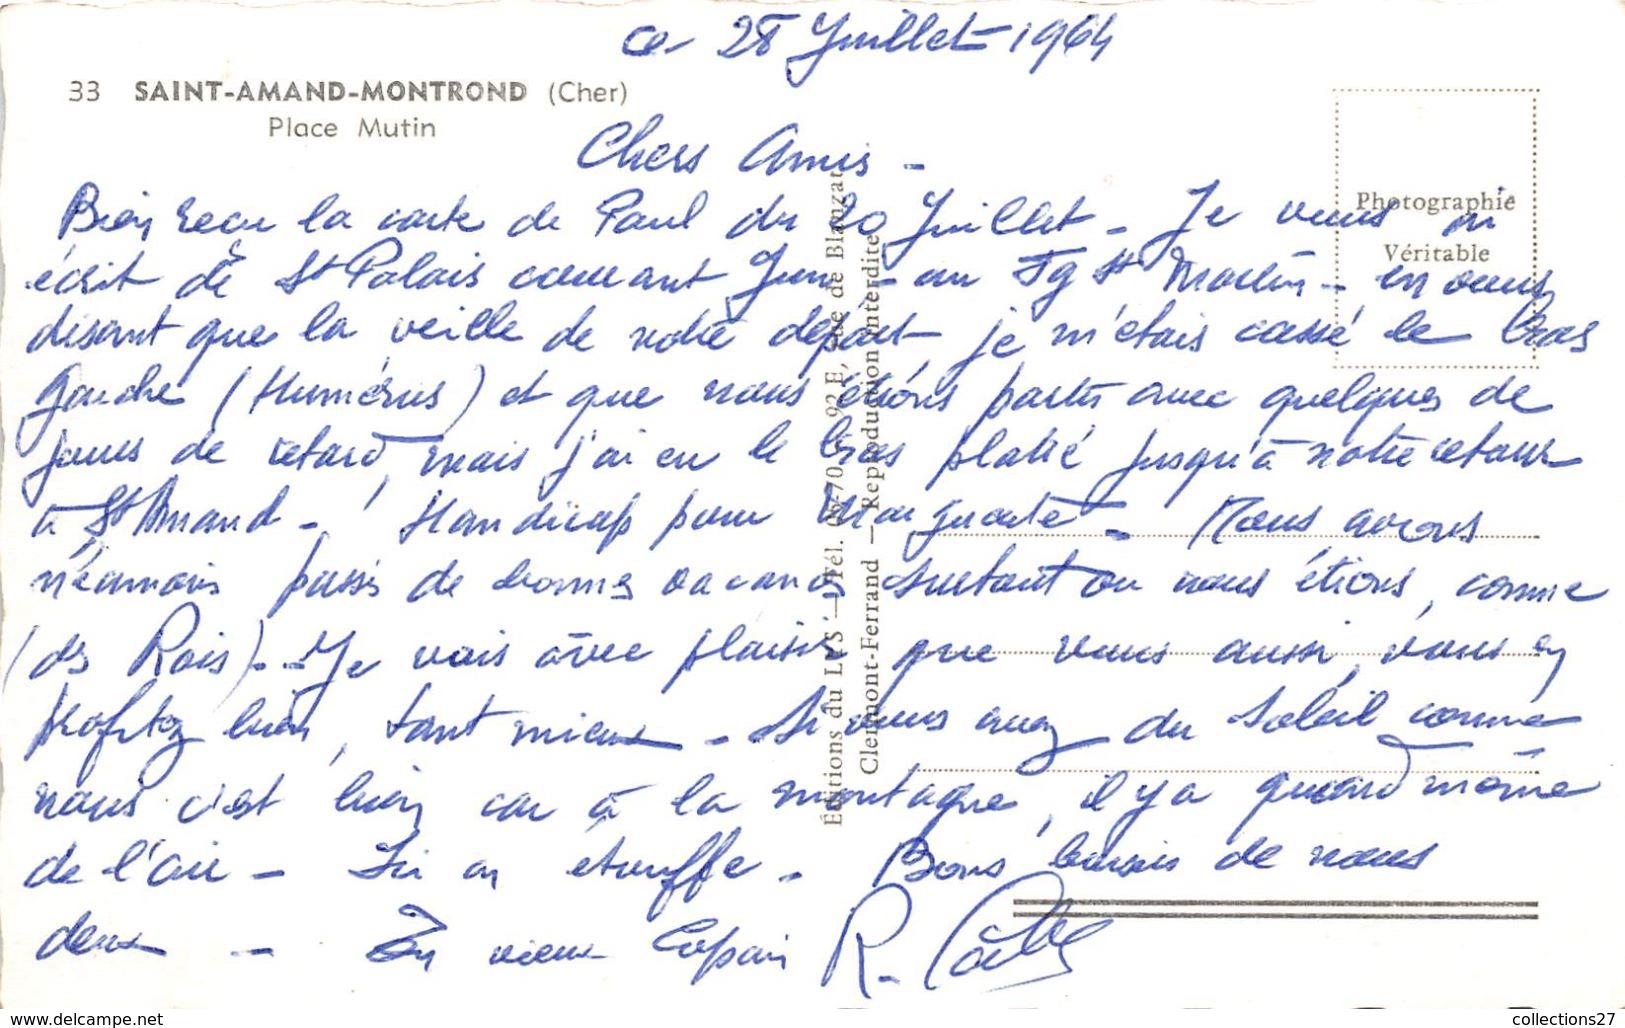 ce 28 Juillet 1964
33 SAINT-AMAND-MONTROND (Cher)
Place Mutin
Chers Amis -
Bien reçu la carte de Paul du 20 Juillet - Je vous ai
écrit de St Palais courant Juin - au Fg St Martin - en vous
disant que la veille de notre départ je m'étais cassé le bras
gauche (Humérus) et que nous étions partis avec quelques de
jours de retard, mais j'ai eu le bras platré jusqu'à notre retour
à St Amand - Handicap pour Marguerite - Nous avons
néamoins passés de bonnes vacances surtout où nous étions, comme
(des Rois) - Je vois avec plaisir que vous aussi, vous en
profitez bien, tant mieux - Si vous avez du soleil comme
nous c'est bien car à la montagne, il y a quand même
de l'air - Ici on étouffe - Bons baisers de nous
deux - Un vieux Copain R.
Photographie
Véritable
Éditions du LYS — Tél. 92 E, rue de Blanzat
Clermont-Ferrand — Reproduction interdite
collections27